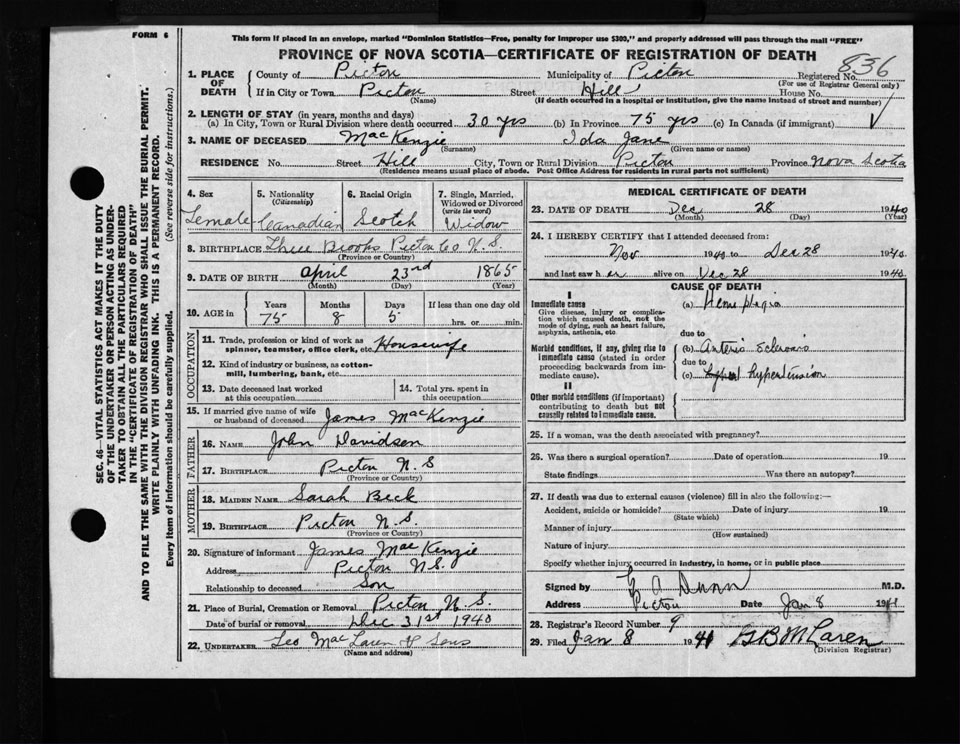 FORM 6
This form if placed in an envelope, marked "Dominion Statistics—Free, penalty for improper use $300," and properly addressed will pass through the mail "FREE"
PROVINCE OF NOVA SCOTIA—CERTIFICATE OF REGISTRATION OF DEATH
836
1. PLACE OF DEATH County of Picton Municipality of Picton Registered No.
(For use of Registrar General only)
If in City or Town Picton Street Hill House No.
(Name) (If death occurred in a hospital or institution, give the name instead of street and number)
2. LENGTH OF STAY (in years, months and days)
(a) In City, Town or Rural Division where death occurred 30 yrs (b) In Province 75 yrs (c) In Canada (if immigrant)
3. NAME OF DECEASED MacKenzie Ida Jane
(Surname) (Given name or names)
RESIDENCE No. Street Hill City, Town or Rural Division Picton Province Nova Scotia
(Residence means usual place of abode. Post Office Address for residents in rural parts not sufficient)
4. Sex 5. Nationality (Citizenship) 6. Racial Origin 7. Single, Married, Widowed or Divorced (write the word)
Female Canadian Scotch Widow
8. BIRTHPLACE Three Brooks Picton Co N.S.
(Province or Country)
9. DATE OF BIRTH April 23rd 1865
(Month) (Day) (Year)
10. AGE in Years Months Days If less than one day old
75 8 5 hrs. or min.
OCCUPATION
11. Trade, profession or kind of work as spinner, teamster, office clerk, etc. Housewife
12. Kind of industry or business, as cotton-mill, lumbering, bank, etc.
13. Date deceased last worked at this occupation 14. Total yrs. spent in this occupation
15. If married give name of wife or husband of deceased James MacKenzie
FATHER
16. NAME John Davidson
17. BIRTHPLACE Picton N.S
(Province or Country)
MOTHER
18. MAIDEN NAME Sarah Beck
19. BIRTHPLACE Picton N.S.
(Province or Country)
20. Signature of informant James MacKenzie
Address Picton N.S.
Relationship to deceased Son
21. Place of Burial, Cremation or Removal Picton N.S.
Date of burial or removal Dec 31st 1940
22. UNDERTAKER Leo MacLaren & Sons
(Name and address)
MEDICAL CERTIFICATE OF DEATH
23. DATE OF DEATH Dec 28 1940
(Month) (Day) (Year)
24. I HEREBY CERTIFY that I attended deceased from:
Nov 1940 to Dec 28 1940
and last saw her alive on Dec 28 1940
CAUSE OF DEATH
I
Immediate cause (a) Hemiplegia
Give disease, injury or complication which caused death, not the mode of dying, such as heart failure, asphyxia, asthenia, etc
due to
Morbid conditions, if any, giving rise to immediate cause (stated in order proceeding backwards from immediate cause). (b) Arterio Sclerosis
due to
(c) hypertension
II
Other morbid conditions (if important) contributing to death but not causally related to immediate cause.
25. If a woman, was the death associated with pregnancy?
26. Was there a surgical operation? Date of operation 19
State findings Was there an autopsy?
27. If death was due to external causes (violence) fill in also the following:—
Accident, suicide or homicide? Date of injury 19
(State which)
Manner of injury
(How sustained)
Nature of injury
Specify whether injury occurred in industry, in home, or in public place
Signed by G A Dunn M.D.
Address Picton Date Jan 8 1941
28. Registrar's Record Number 9
29. Filed Jan 8 1941 McLaren
(Division Registrar)
SEC. 46—VITAL STATISTICS ACT MAKES IT THE DUTY
OF THE UNDERTAKER OR PERSON ACTING AS UNDER-
TAKER TO OBTAIN ALL THE PARTICULARS REQUIRED
IN THE "CERTIFICATE OF REGISTRATION OF DEATH"
AND TO FILE THE SAME WITH THE DIVISION REGISTRAR WHO SHALL ISSUE THE BURIAL PERMIT.
WRITE PLAINLY WITH UNFADING INK. THIS IS A PERMANENT RECORD.
Every item of information should be carefully supplied. (See reverse side for instructions.)